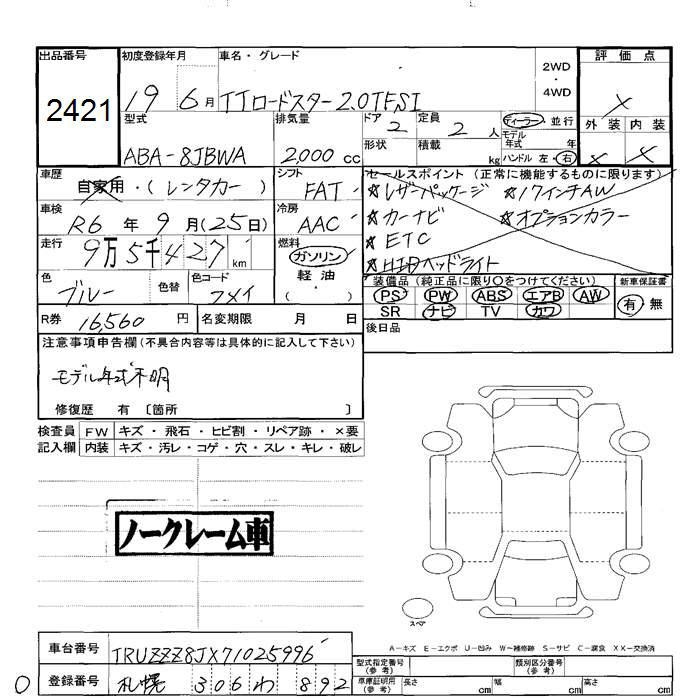 出品番号 初度登録年月 車名・グレード 2WD・4WD 評価点
2421 19 6月 TTロードスター2.0TFSI ×
型式 排気量 ドア 2 定員 2人 ディーラー 並行 外装 内装
ABA-8JBWA 2,000cc 形状 積載 kg モデル年式 年 ハンドル 左・右 × ×
車歴 自家用・(レンタカー) シフト FAT セールスポイント(正常に機能するものに限ります)
車検 R6年9月(25日) 冷房 AAC ☆レザーパッケージ ☆17インチAW
☆カーナビ ☆オプションカラー
走行 9万5千427km 燃料 ガソリン ☆ETC
軽油 ☆HIDヘッドライト
色 ブルー 色替 色コード ( ) 装備品(純正品に限り○をつけてください) 新車保証書
PS PW ABS エアB AW 有 無
R券 16,560円 名変期限 月 日 SR ナビ TV カワ
注意事項申告欄(不具合内容等は具体的に記入して下さい) 後日品
モデル年式不明
修復歴 有 〔箇所 〕
検査員 FW キズ・飛石・ヒビ割・リペア跡・×要
記入欄 内装 キズ・汚レ・コゲ・穴・スレ・キレ・破レ
ノークレーム車
スペア
A-キズ E-エクボ U-凹み W-補修跡 S-サビ C-腐食 XX-交換済
車台番号 TRUZZZ8JX71025996 型式指定番号(参考) 類別区分番号(参考)
0 登録番号 札幌 306わ892 車庫証明用(参考) 長さ cm 幅 cm 高さ cm